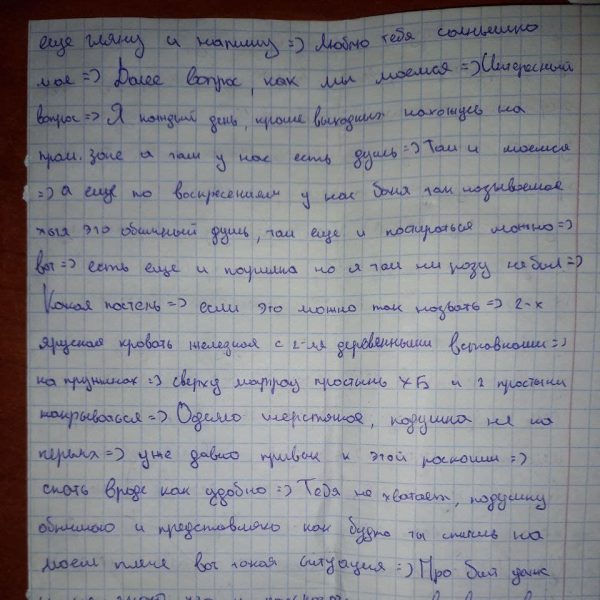 еще гляну и напишу =) Люблю тебя солнешко
мое =) Далее вопрос, как мы моемся =) Интересный
вопрос =) Я каждый день, кроме выходных нахожусь на
пром. зоне а там у нас есть душь =) Там и моемся
=) а еще по воскресениям у нас баня так называемое
хотя это обычный душь, там еще и постираться можно =)
вот =) есть еще и парилка но я там ни разу не был =)
Какая постель =) если это можно так назвать =) 2-х
ярусная кровать железная с 2-мя деревянными вставками =)
на пружинах =) сверху матрац простынь ХБ и 2 простыни
накрываться =) Одеяло шерстяное, подушка не на
перьях =) уже давно привык к этой роскоши =)
спать вроде как удобно =) Тебя не хватает, подушку
обнимаю и представляю как будто ты спишь на
моем плече вот такая ситуация =) Про быт даже